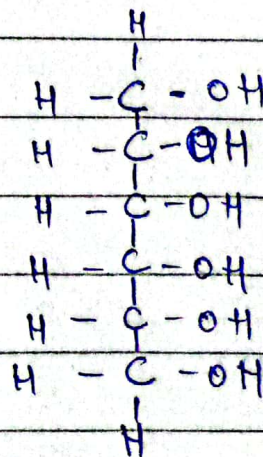 H
H - C - OH
H - C - OH
H - C - OH
H - C - OH
H - C - OH
H - C - OH
H